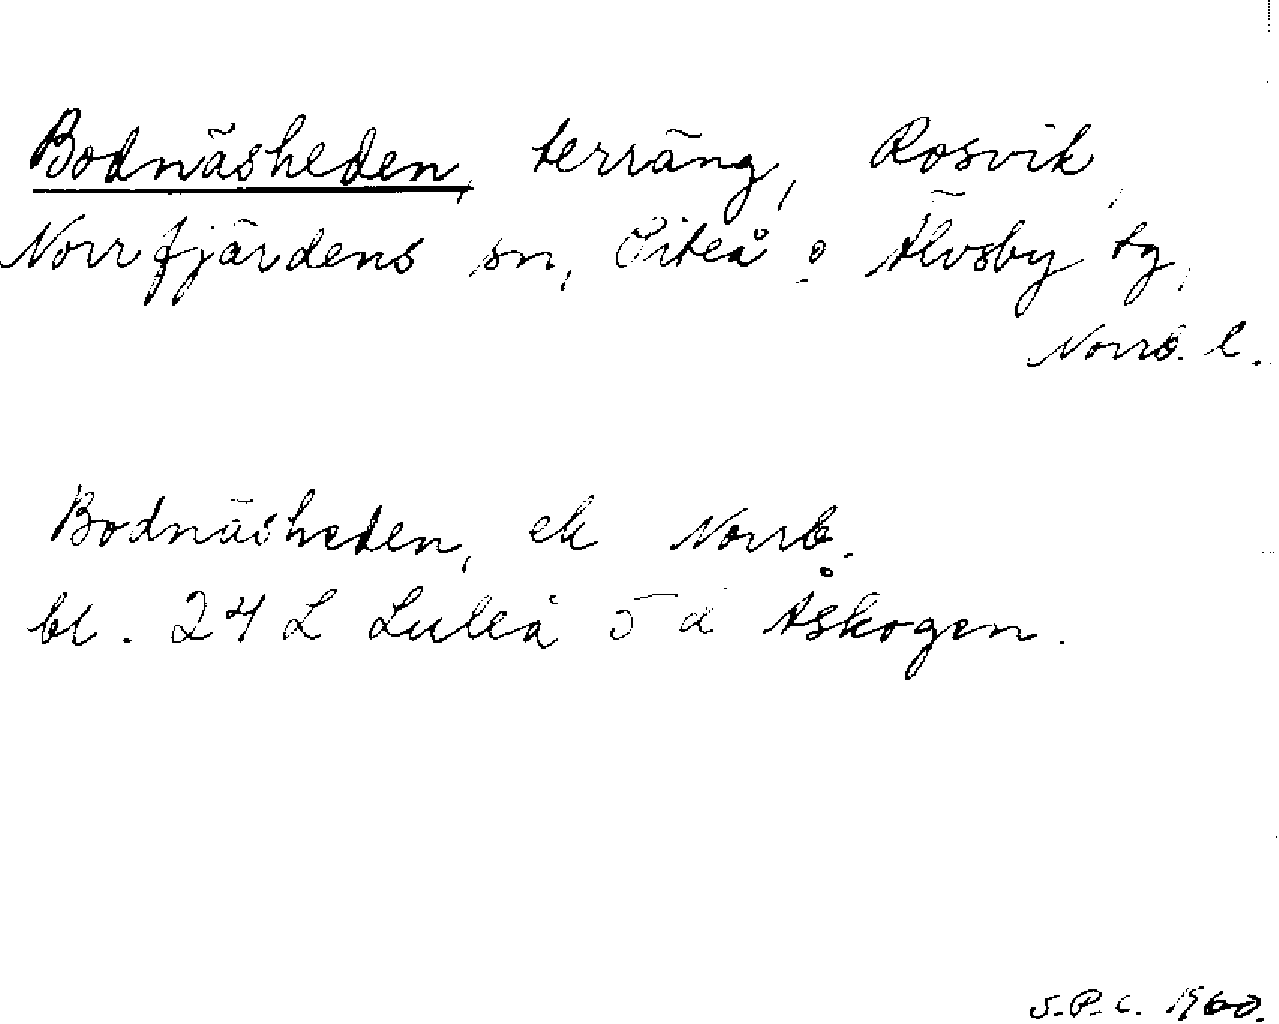 Bodnäsheden, terräng, Rosvik,
Norrfjärdens sn, Piteå o. Älvsby tg,
Norrb. l.
Bodnäsheden, ek Norrb.
bl. 24 L Luleå 5 d Åskogen.
S.P.C. 1960.